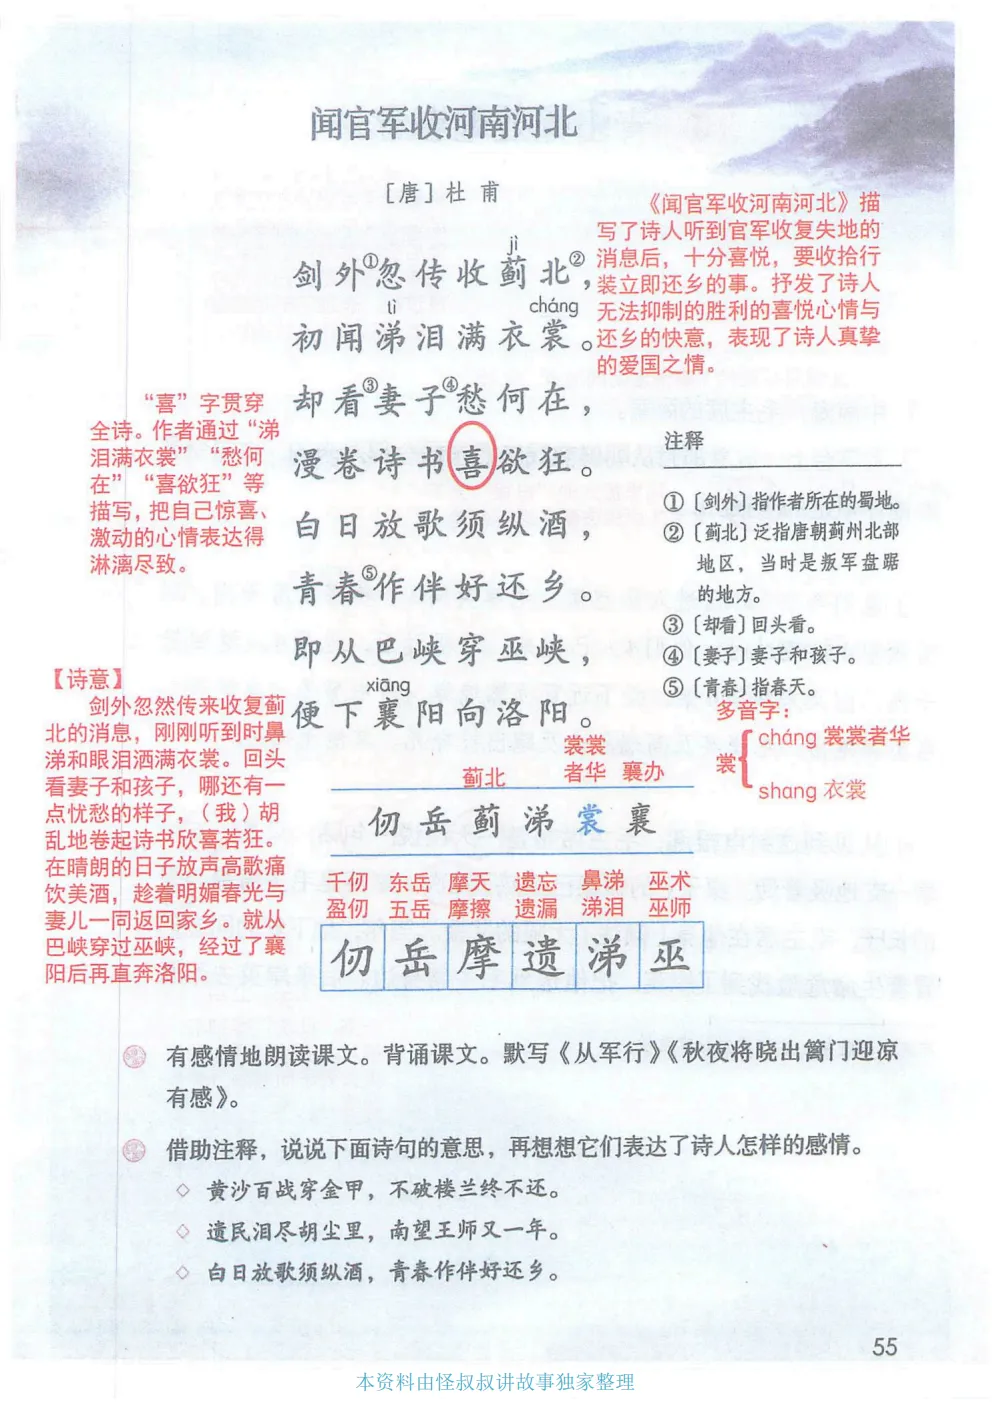 闻官军收河南河北
［唐］杜 甫
《闻官军收河南河北》描
写了诗人听到官军收复失地的
消息后，十分喜悦，要收拾行
装立即还乡的事。抒发了诗人
无法抑制的胜利的喜悦心情与
还乡的快意，表现了诗人真挚
的爱国之情。
jì
剑外①忽传收蓟北②，
tì cháng
初闻涕泪满衣裳。
却看③妻子④愁何在，
漫卷诗书喜欲狂。
白日放歌须纵酒，
青春⑤作伴好还乡。
即从巴峡穿巫峡，
xiāng
便下襄阳向洛阳。
“喜”字贯穿
全诗。作者通过“涕
泪满衣裳”“愁何
在”“喜欲狂”等
描写，把自己惊喜、
激动的心情表达得
淋漓尽致。
注释
①〔剑外〕指作者所在的蜀地。
②〔蓟北〕泛指唐朝蓟州北部
地区，当时是叛军盘踞
的地方。
③〔却看〕回头看。
④〔妻子〕妻子和孩子。
⑤〔青春〕指春天。
【诗意】
剑外忽然传来收复蓟
北的消息，刚刚听到时鼻
涕和眼泪洒满衣裳。回头
看妻子和孩子，哪还有一
点忧愁的样子，（我）胡
乱地卷起诗书欣喜若狂。
在晴朗的日子放声高歌痛
饮美酒，趁着明媚春光与
妻儿一同返回家乡。就从
巴峡穿过巫峡，经过了襄
阳后再直奔洛阳。
多音字：
裳{
cháng 裳裳者华
shang 衣裳
裳裳
蓟北 者华 襄办
仞岳蓟涕裳襄
千仞 东岳 摩天 遗忘 鼻涕 巫术
盈仞 五岳 摩擦 遗漏 涕泪 巫师
仞岳摩遗涕巫
有感情地朗读课文。背诵课文。默写《从军行》《秋夜将晓出篱门迎凉
有感》。
借助注释，说说下面诗句的意思，再想想它们表达了诗人怎样的感情。
◇ 黄沙百战穿金甲，不破楼兰终不还。
◇ 遗民泪尽胡尘里，南望王师又一年。
◇ 白日放歌须纵酒，青春作伴好还乡。
55
本资料由怪叔叔讲故事独家整理